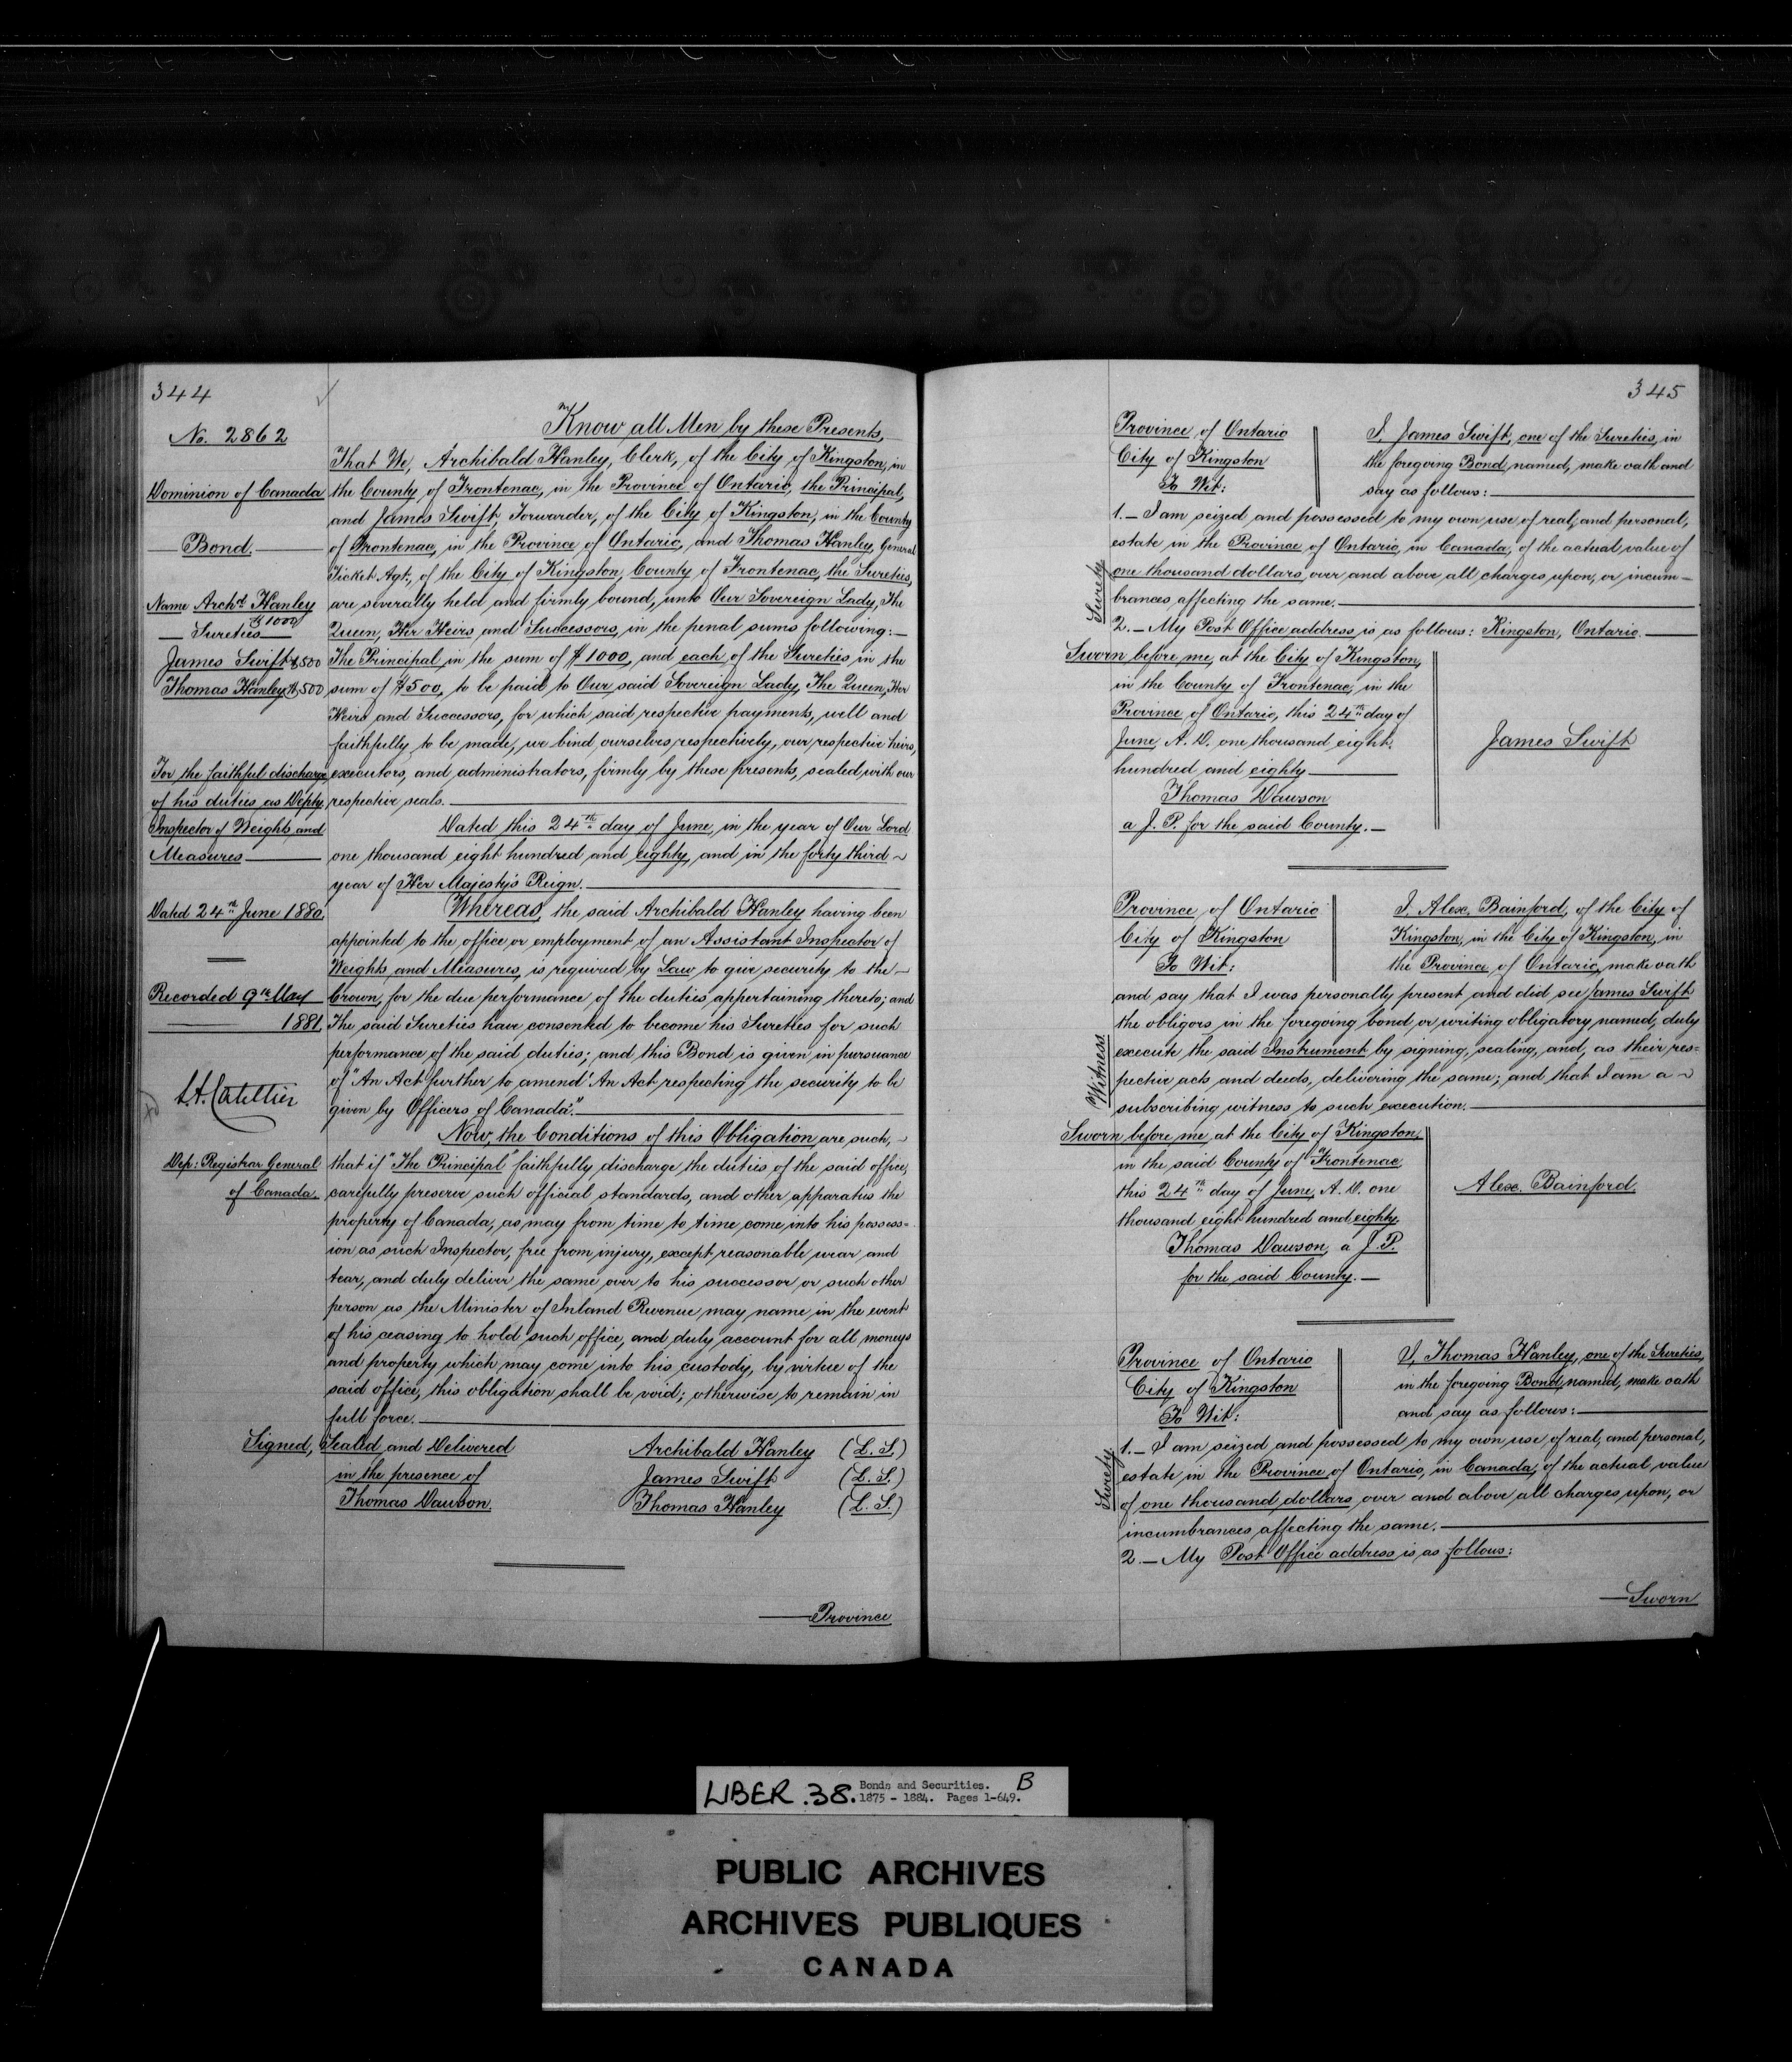 344
No. 2862
Dominion of Canada
Bond.
Name Archd Hanley
$1000
Sureties
James Swift $500
Thomas Hanley $500
For the faithful discharge
of his duties as Depty
Inspector of Weights and
Measures
Dated 24th June 1880.
Recorded 9th May
1881.
L.A. Catellier
Dep: Registrar General
of Canada.
Know all Men by these Presents,
That We, Archibald Hanley, Clerk, of the City of Kingston, in
the County of Frontenac, in the Province of Ontario, the Principal,
and James Swift, Forwarder, of the City of Kingston, in the County
of Frontenac, in the Province of Ontario, and Thomas Hanley, General
Ticket Agt., of the City of Kingston, County of Frontenac, the Sureties,
are severally held and firmly bound, unto Our Sovereign Lady, The
Queen, Her Heirs and Successors, in the penal sums following:—
The Principal, in the sum of $1000, and each of the Sureties in the
sum of $500, to be paid to Our said Sovereign Lady, The Queen, Her
Heirs and Successors, for which said respective payments, well and
faithfully to be made, we bind ourselves respectively, our respective heirs,
executors, and administrators, firmly by these presents, sealed with our
respective seals.
Dated this 24th day of June, in the year of Our Lord
one thousand eight hundred and eighty, and in the forty third
year of Her Majesty's Reign.
Whereas, the said Archibald Hanley having been
appointed to the office or employment of an Assistant Inspector of
Weights and Measures, is required by Law to give security to the
Crown, for the due performance of the duties appertaining thereto; and
The said Sureties have consented to become his Sureties for such
performance of the said duties; and this Bond is given in pursuance
of "An Act further to amend 'An Act respecting the security to be
given by Officers of Canada'."
Now, the Conditions of this Obligation are such,
that if "The Principal" faithfully discharge the duties of the said office,
carefully preserve such official standards, and other apparatus the
property of Canada, as may from time to time come into his possess=
ion as such Inspector, free from injury, except reasonable wear and
tear, and duly deliver the same over to his successor or such other
person as the Minister of Inland Revenue may name in the event
of his ceasing to hold such office, and duly account for all moneys
and property which may come into his custody, by virtue of the
said office, this obligation shall be void; otherwise to remain in
full force.
Signed, Sealed and Delivered
in the presence of
Thomas Dawson
Archibald Hanley (L. S.)
James Swift (L. S.)
Thomas Hanley (L. S.)
—Province
345
Province of Ontario
City of Kingston
To Wit:
I, James Swift, one of the Sureties, in
the foregoing Bond, named, make oath and
say as follows:
Surety
1.— I am seized and possessed to my own use of real, and personal,
estate in the Province of Ontario, in Canada, of the actual value of
one thousand dollars, over and above all charges upon, or incum—
brances affecting the same.
2.— My Post Office address is as follows: Kingston, Ontario.
Sworn before me, at the City of Kingston,
in the County of Frontenac, in the
Province of Ontario, this 24th day of
June, A. D. one thousand eight
hundred and eighty
Thomas Dawson
a J. P. for the said County.—
James Swift
Province of Ontario
City of Kingston
To Wit:
I, Alex. Bainford, of the City of
Kingston, in the City of Kingston, in
the Province of Ontario, make oath
Witness
and say that I was personally present, and did see James Swift
the obligors in the foregoing bond or writing obligatory, named, duly
execute the said Instrument by signing, sealing, and, as their res=
pective acts and deeds, delivering the same; and that I am a
subscribing witness to such execution.
Sworn before me, at the City of Kingston,
in the said County of Frontenac,
this 24th day of June, A. D. one
thousand eight hundred and eighty.
Thomas Dawson, a J. P.
for the said County.—
Alex. Bainford.
Province of Ontario
City of Kingston
To Wit:
I, Thomas Hanley, one of the Sureties,
in the foregoing Bond, named, make oath
and say as follows:
Surety
1.— I am seized and possessed to my own use of real, and personal,
estate in the Province of Ontario, in Canada, of the actual value
of one thousand dollars, over and above all charges upon, or
incumbrances affecting the same.
2.— My Post Office address is as follows:
—Sworn
LIBER .38. Bonds and Securities. B
1875 - 1884. Pages 1-649.
PUBLIC ARCHIVES
ARCHIVES PUBLIQUES
CANADA